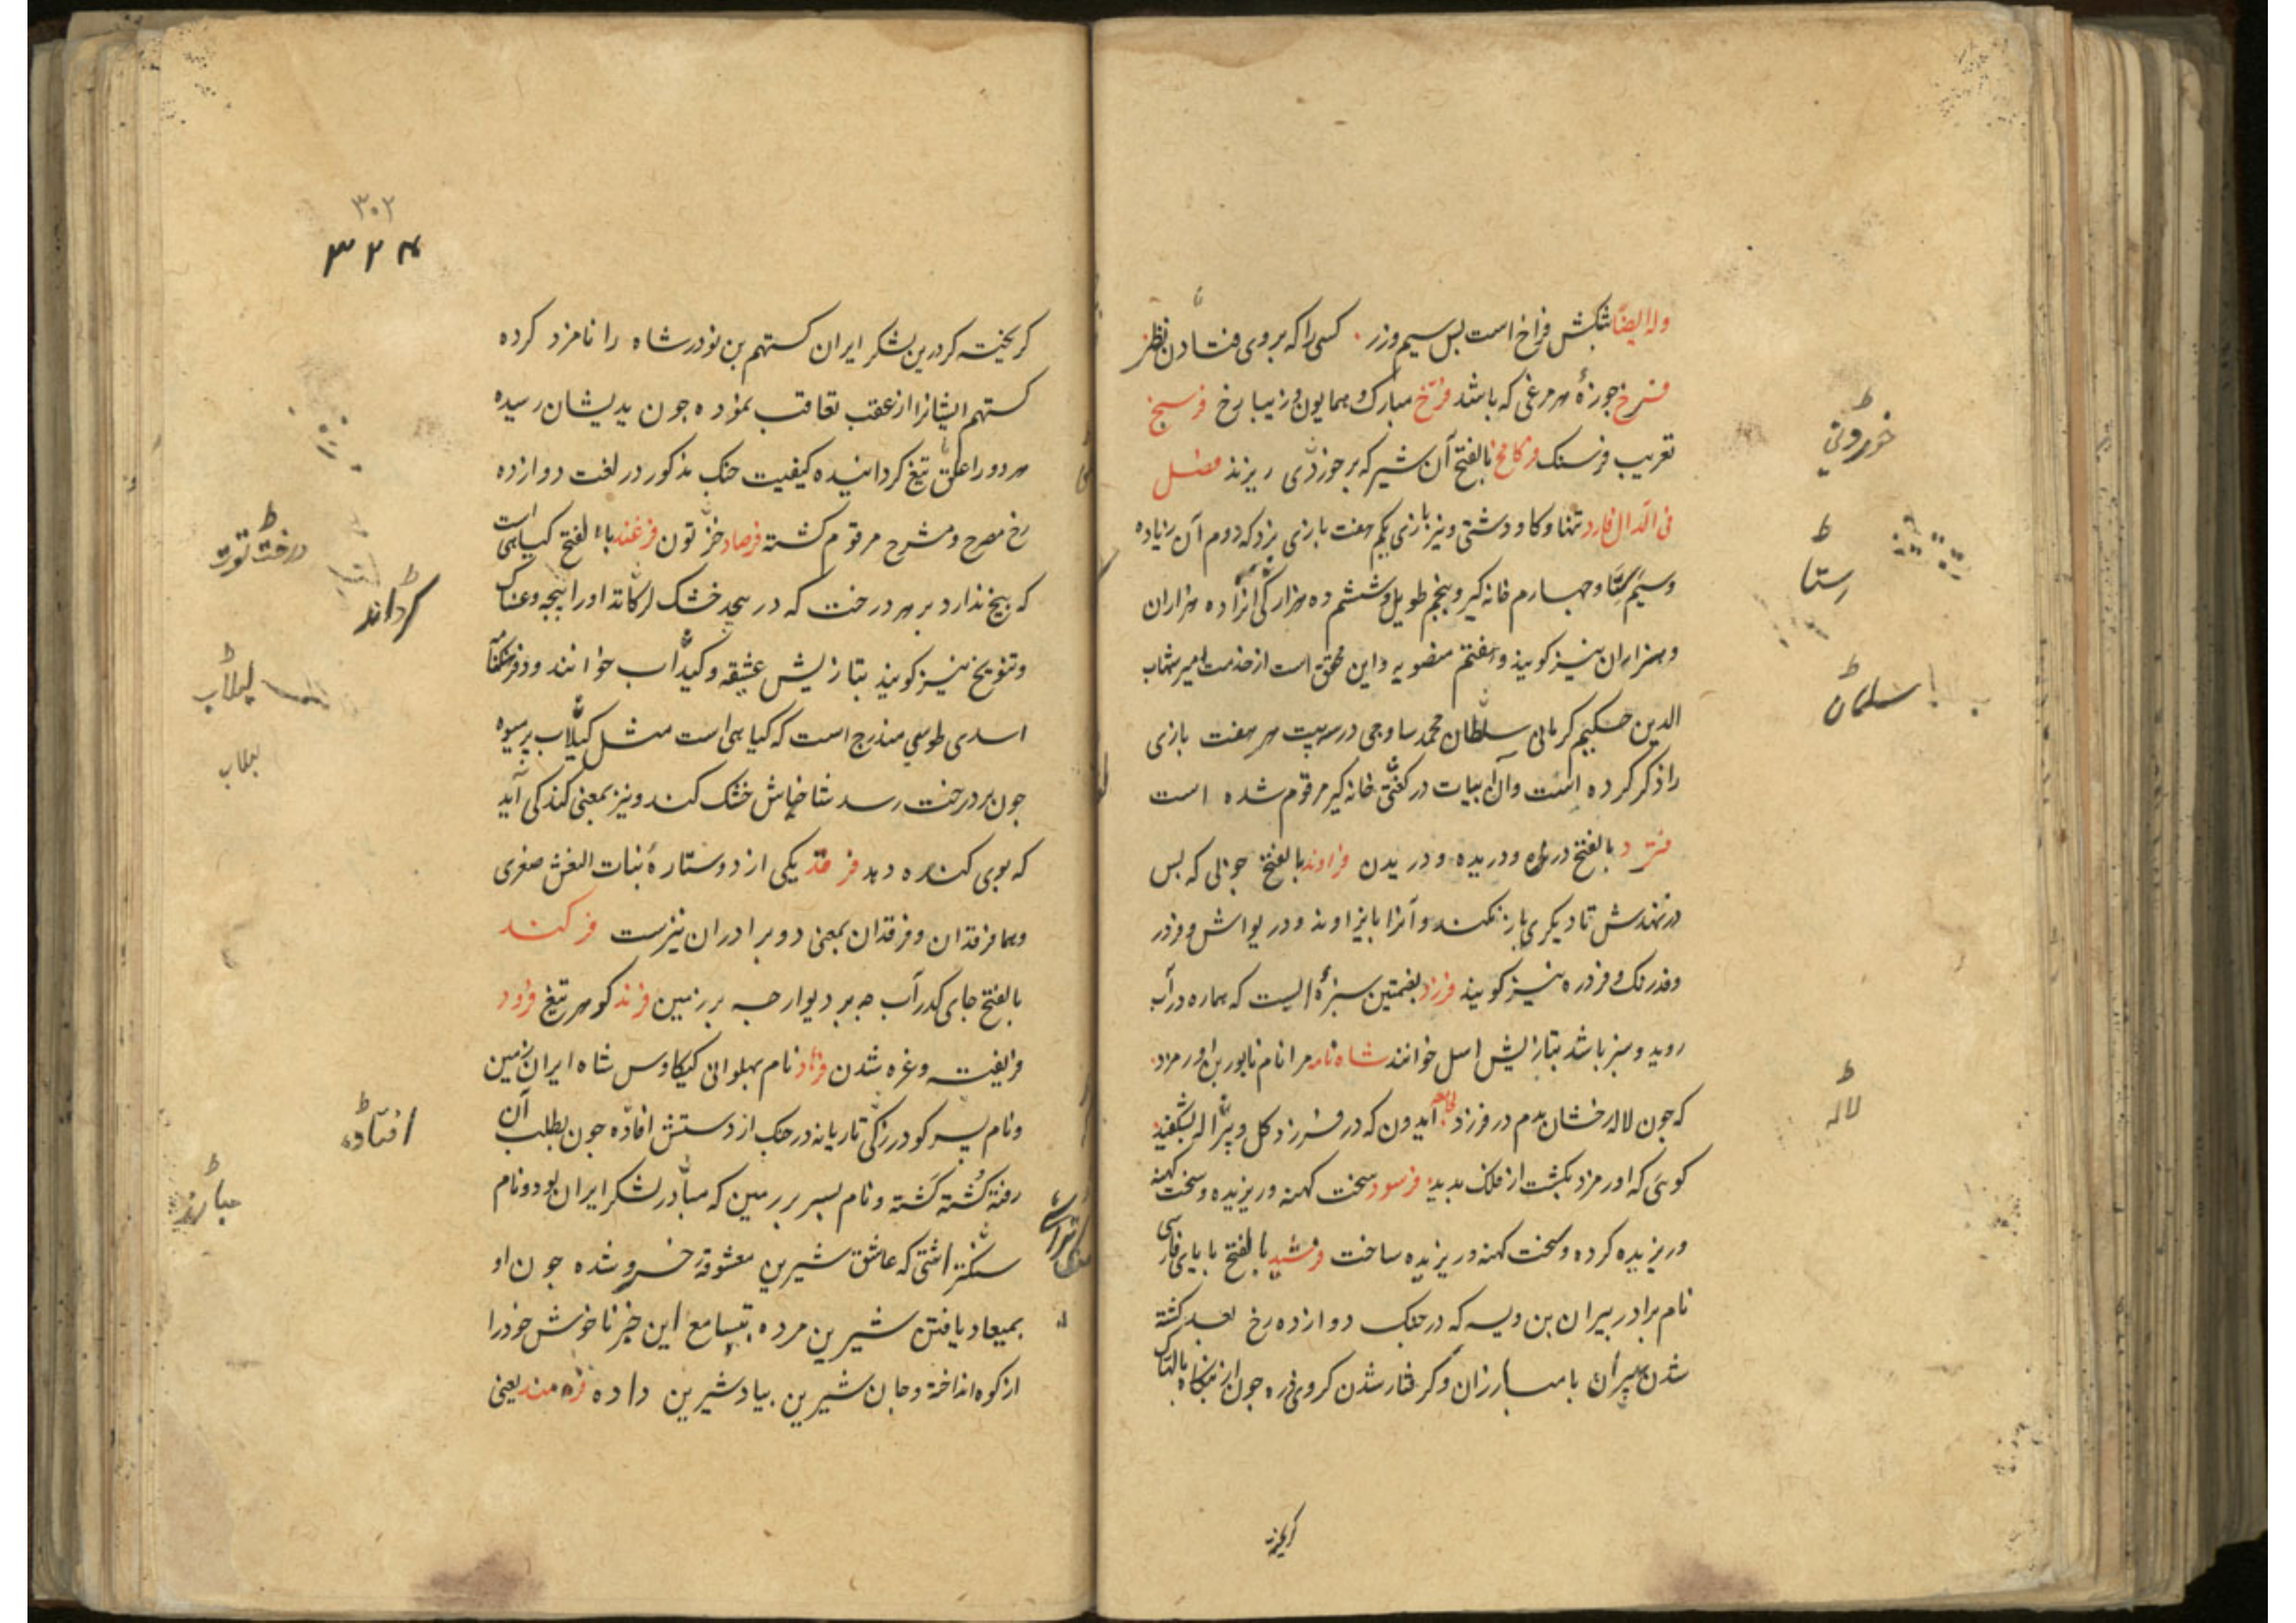 وله ایضا شکش فراخ است بس سیم وزر کسی را که بروی فتادن نظر
فرخ جوزۀ هر مرغی که باشد فرّخ مبارک و همایون و زیبا رخ فرسخ
تعریب فرسنک بالفتح آن شیر که بر خوردنی ریزند فصل
فی الدال فارد تنها و کاو دشتی و نیز بازی یکم هفت بازی نرد که دوم آن زیاده
وسیم ستا و جهارم خانه کیر و پنجم طویل و ششم ده هزار که آنرا ده هزاران
و هزاران نیز کویند و هفتم منصوبه و این محقق است از خدمت امیر شهاب
الدین حکیم کرمانی سلطان محمد ساوجی در سه بیت هر هفت بازی
را ذکر کرده است و آن ابیات در لغت خانه کیر مرقوم شده است
فترد بالفتح دریده و دریدن فراوند بالفتح جوبی که پس
در نهندش تا دیکری باز نکند و آنرا با پزاوند و دریواش و فردر
و فدرنک و فردره نیز کویند فرزد بفتحتین سبزۀ ایست که هماره در آب
روید و سبز باشد بتازیش اصل خوانند شاه نامه مرا نام شاپور بن اورمزد
که جون لاله رخشان بدم در فرزد آیدون که در فرزد کل و لاله بشکفید
کوئی که اورمزد بکشت از فلک بدید فرسود سخت کهنه و ریزیده و سخت کهنه
و ریزیده کرده و سخت کهنه و ریزیده ساخت فرشید بالفتح با یای فارسی
نام برادر پیران بن ویسه که در جنک دوازده رخ بعد کشته
شدن پیران با مبارزان و کرفتار شدن کروی زره جون
کریخته
خوردنی
ستا
سلمان
لاله
۳۰۲
۳۲۴
کریخته کردرین لشکر ایران کستهم بن نوذر شاه را نامزد کرده
کستهم ایشانرا از عقب تعاقب نموده جون بدیشان رسیده
هر دو را علف تیغ کردانیده کیفیت جنک مذکور در لغت دوازده
رخ مصرح و مشرح مرقوم کشته فرصاد خرتون فرغند بالفتح کیاهی است
که بیخ ندارد بر هر درخت که در پیجد خشک کرداند او را پیجه و عنک
و تنویخ نیز کویند بتازیش عشقه و کبداب خوانند و در فرهنکنامه
اسدی طوسی مندرج است که کیاهی است مثل لبلاب بی میوه
جون بر درخت رسد شاخهاش خشک کند و نیز بمعنی کندکی آید
که بوی کنده دهد فرقد یکی از دو ستارۀ بنات النعش صغری
و هما فرقدان و فرقدان بمعنی دو برادران نیز است فرکند
بالفتح جای کذر آب جه بر دیوار جه بر زمین فرند کوهر تیغ فرود
فریفته و غره شدن فرهاد نام پهلوانی کیکاوس شاه ایران زمین
و نام پسر کودرز که تازیانه در جنک از دستش افتاده جون بطلب آن
رفته کشته کشته و نام پسر برزمین که مبارز لشکر ایران بود و نام
سنکتراشی که عاشق شیرین معشوقۀ خسرو شده جون او
بمیعاد یافتن شیرین مرده بتسامع این خبر ناخوش خود را
از کوه انداخته و جان شیرین بیاد شیرین داده فرهمند یعنی
درخت توت
کرداند
لبلاب
لبلاب
افتاده
مبارز